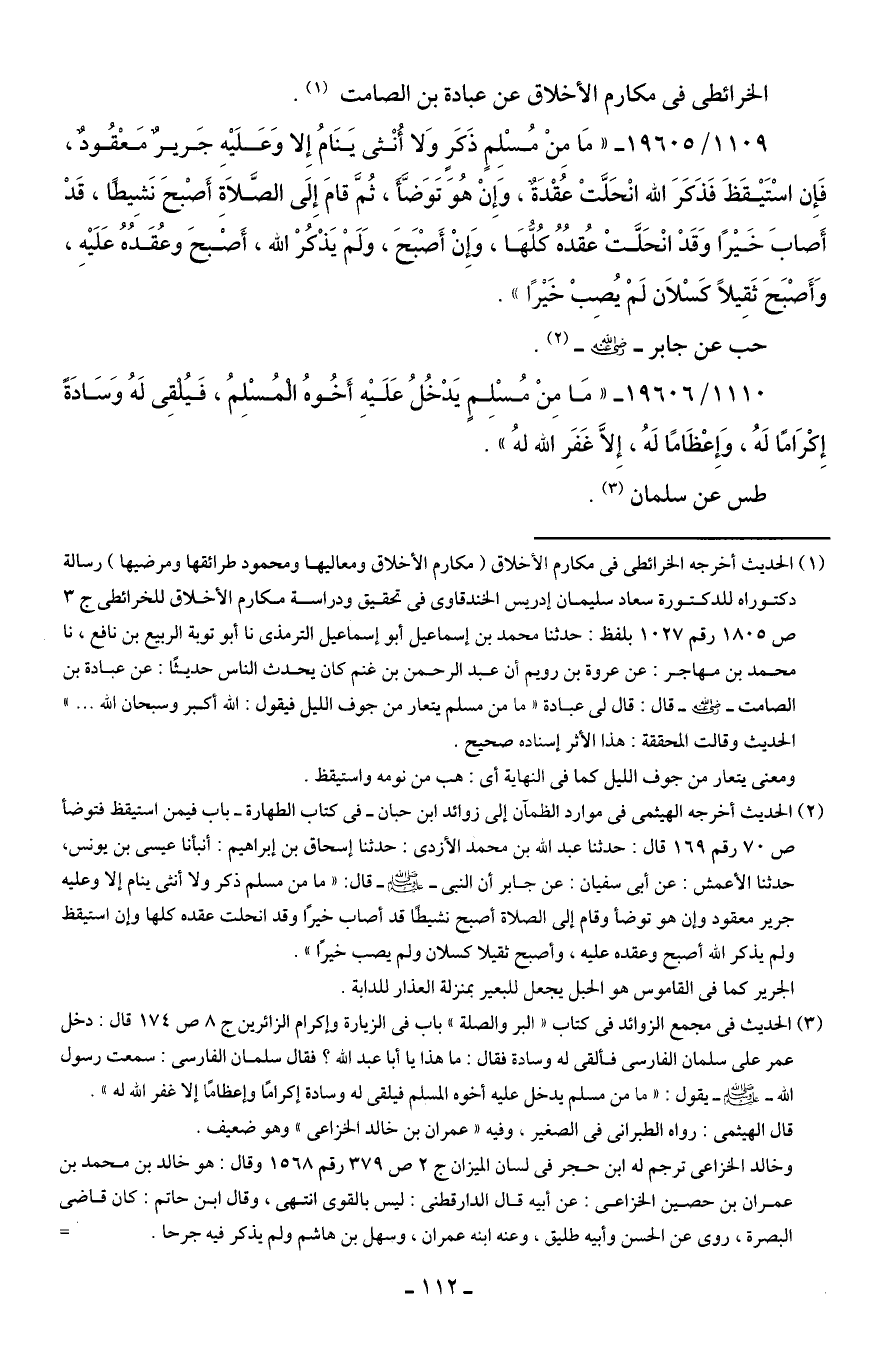 الخرائطى فى مكارم الأخلاق عن عبادة بن الصامت (١) .
١١٠٩/ ١٩٦٠٥ـ « مَا مِنْ مُسْلِمٍ ذَكَرٍ وَلَا أُنْثى يَنَامُ إلا وَعَلَيْهِ جَرِيرٌ مَعْقُودٌ ،
فَإن اسْتَيْقَظَ فَذَكَرَ الله انْحَلَّتْ عُقْدَةٌ ، وَإنْ هُوَ تَوَضَّأَ ، ثُمَّ قامَ إلَى الصَّلاَةِ أصْبَحَ نَشيطًا ، قَدْ
أصابَ خَيْرًا وَقَدْ انْحَلَّتْ عُقدُهُ كُلُّهَا ، وَإنْ أصْبَحَ ، وَلَمْ يَذْكُرْ الله ، أصْبحَ وعُقَدُهُ عَلَيْهِ ،
وَأَصْبَحَ ثَقيلاً كَسْلاَن لَمْ يُصِبْ خَيْرًا » .
حب عن جابر ـ رضي الله عنه ـ (٢) .
١١١٠/ ١٩٦٠٦ـ « مَا مِنْ مُسْلِمٍ يَدْخُلُ عَلَيْهِ أخُوهُ الْمُسْلِمُ ، فَيُلْقِى لَهُ وَسَادَةً
إكْرَامًا لَهُ ، وَإعْظَامًا لَهُ ، إلاَّ غَفَر الله لهُ » .
طس عن سلمان (٣) .
(١) الحديث أخرجه الخرائطى فى مكارم الأخلاق ( مكارم الأخلاق ومعاليها ومحمود طرائقها ومرضيها ) رسالة
دكتوراه للدكتورة سعاد سليمان إدريس الخندقاوى فى تحقيق ودراسة مكارم الأخلاق للخرائطى ج ٣
ص ١٨٠٥ رقم ١٠٢٧ بلفظ : حدثنا محمد بن إسماعيل أبو إسماعيل الترمذى نا أبو توبة الربيع بن نافع ، نا
محمد بن مهاجر : عن عروة بن رويم أن عبد الرحمن بن غنم كان يحدث الناس حديثًا : عن عبادة بن
الصامت ـ رضي الله عنه ـ قال : قال لى عبادة « ما من مسلم يتعار من جوف الليل فيقول : الله أكبر وسبحان الله ... »
الحديث وقالت المحققة : هذا الأثر إسناده صحيح .
ومعنى يتعار من جوف الليل كما فى النهاية أى : هب من نومه واستيقظ .
(٢) الحديث أخرجه الهيثمى فى موارد الظمآن إلى زوائد ابن حبان ـ فى كتاب الطهارة ـ باب فيمن استيقظ فتوضأ
ص ٧٠ رقم ١٦٩ قال : حدثنا عبد الله بن محمد الأزدى : حدثنا إسحاق بن إبراهيم : أنبأنا عيسى بن يونس،
حدثنا الأعمش : عن أبى سفيان : عن جابر أن النبى ـ ﷺ ـ قال: « ما من مسلم ذكر ولا أنثى ينام إلا وعليه
جرير معقود وإن هو توضأ وقام إلى الصلاة أصبح نشيطًا قد أصاب خيرًا وقد انحلت عقده كلها وإن استيقظ
ولم يذكر الله أصبح وعقده عليه ، وأصبح ثقيلا كسلان ولم يصب خيرًا » .
الجرير كما فى القاموس هو الحبل يجعل للبعير بمنزلة العذار للدابة .
(٣) الحديث فى مجمع الزوائد فى كتاب « البر والصلة » باب فى الزيارة وإكرام الزائرين ج ٨ ص ١٧٤ قال : دخل
عمر على سلمان الفارسى فألقى له وسادة فقال : ما هذا يا أبا عبد الله ؟ فقال سلمان الفارسى : سمعت رسول
الله ـ ﷺ ـ يقول : « ما من مسلم يدخل عليه أخوه المسلم فيلقى له وسادة إكرامًا وإعظامًا إلا غفر الله له » .
قال الهيثمى : رواه الطبرانى فى الصغير ، وفيه « عمران بن خالد الخزاعى » وهو ضعيف .
وخالد الخزاعى ترجم له ابن حجر فى لسان الميزان ج ٢ ص ٣٧٩ رقم ١٥٦٨ وقال : هو خالد بن محمد بن
عمران بن حصين الخزاعى : عن أبيه قال الدارقطنى : ليس بالقوى انتهى ، وقال ابن حاتم : كان قاضى
البصرة ، روى عن الحسن وأبيه طليق ، وعنه ابنه عمران ، وسهل بن هاشم ولم يذكر فيه جرحا . =
ـ ١١٢ ـ